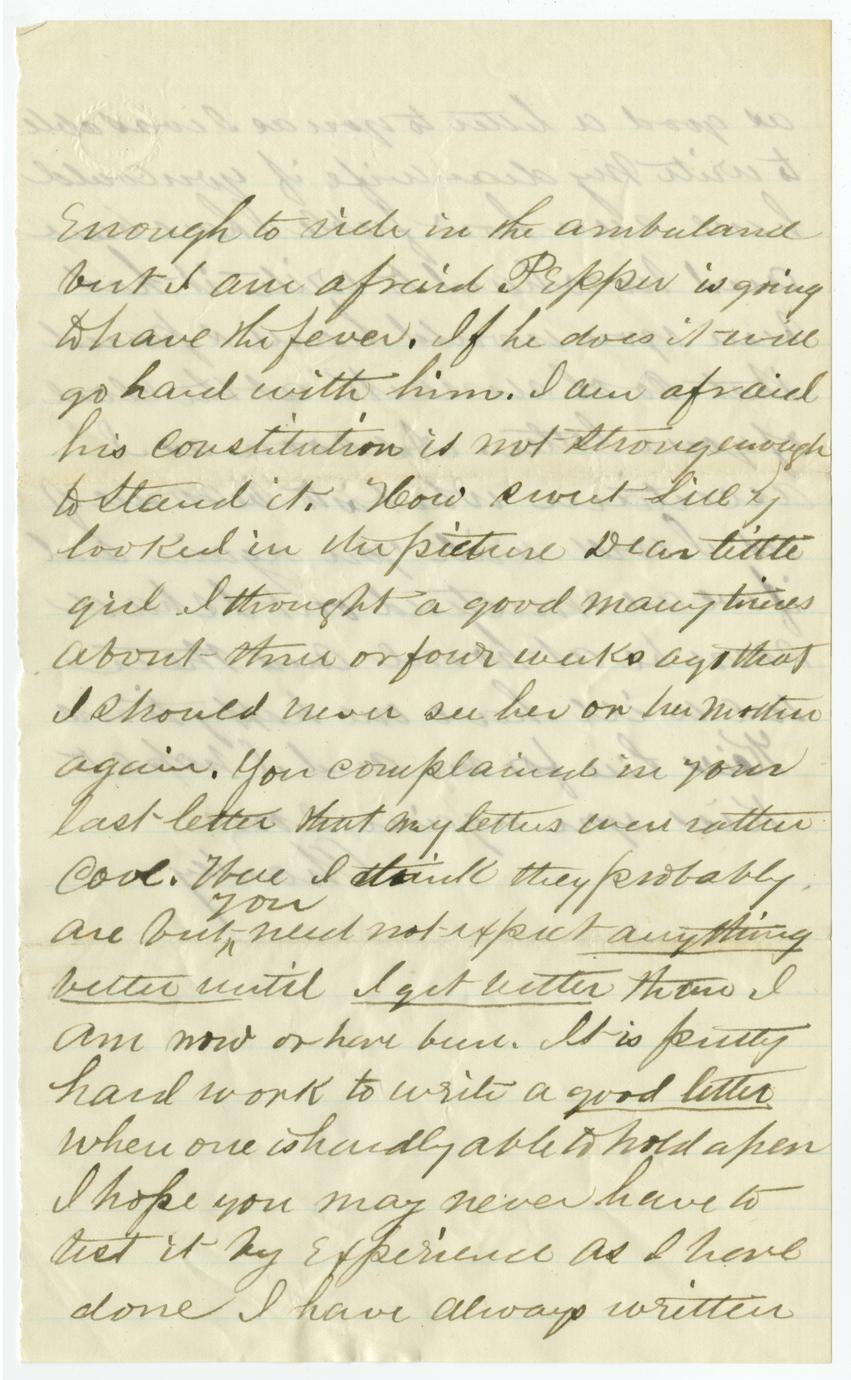 Enough to ride in the ambuland
but I am afraid Pepper is going
to have the fever. If he does it will
go hard with him. I am afraid
his constitution is not strong enough
to stand it. How sweet Lilly
looked in the picture Dear little
girl I thought a good many times
about three or four weeks ago that
I should never see her or her mother
again. You complained in your
last letter that my letters were rather
Cool. Well I think they probably
are but you need not expect anything
better until I get better than I
am now or have been. It is pretty
hard work to write a good letter
when one is hardly able to hold a pen
I hope you may never have to
test it by Experience as I have
done I have always written